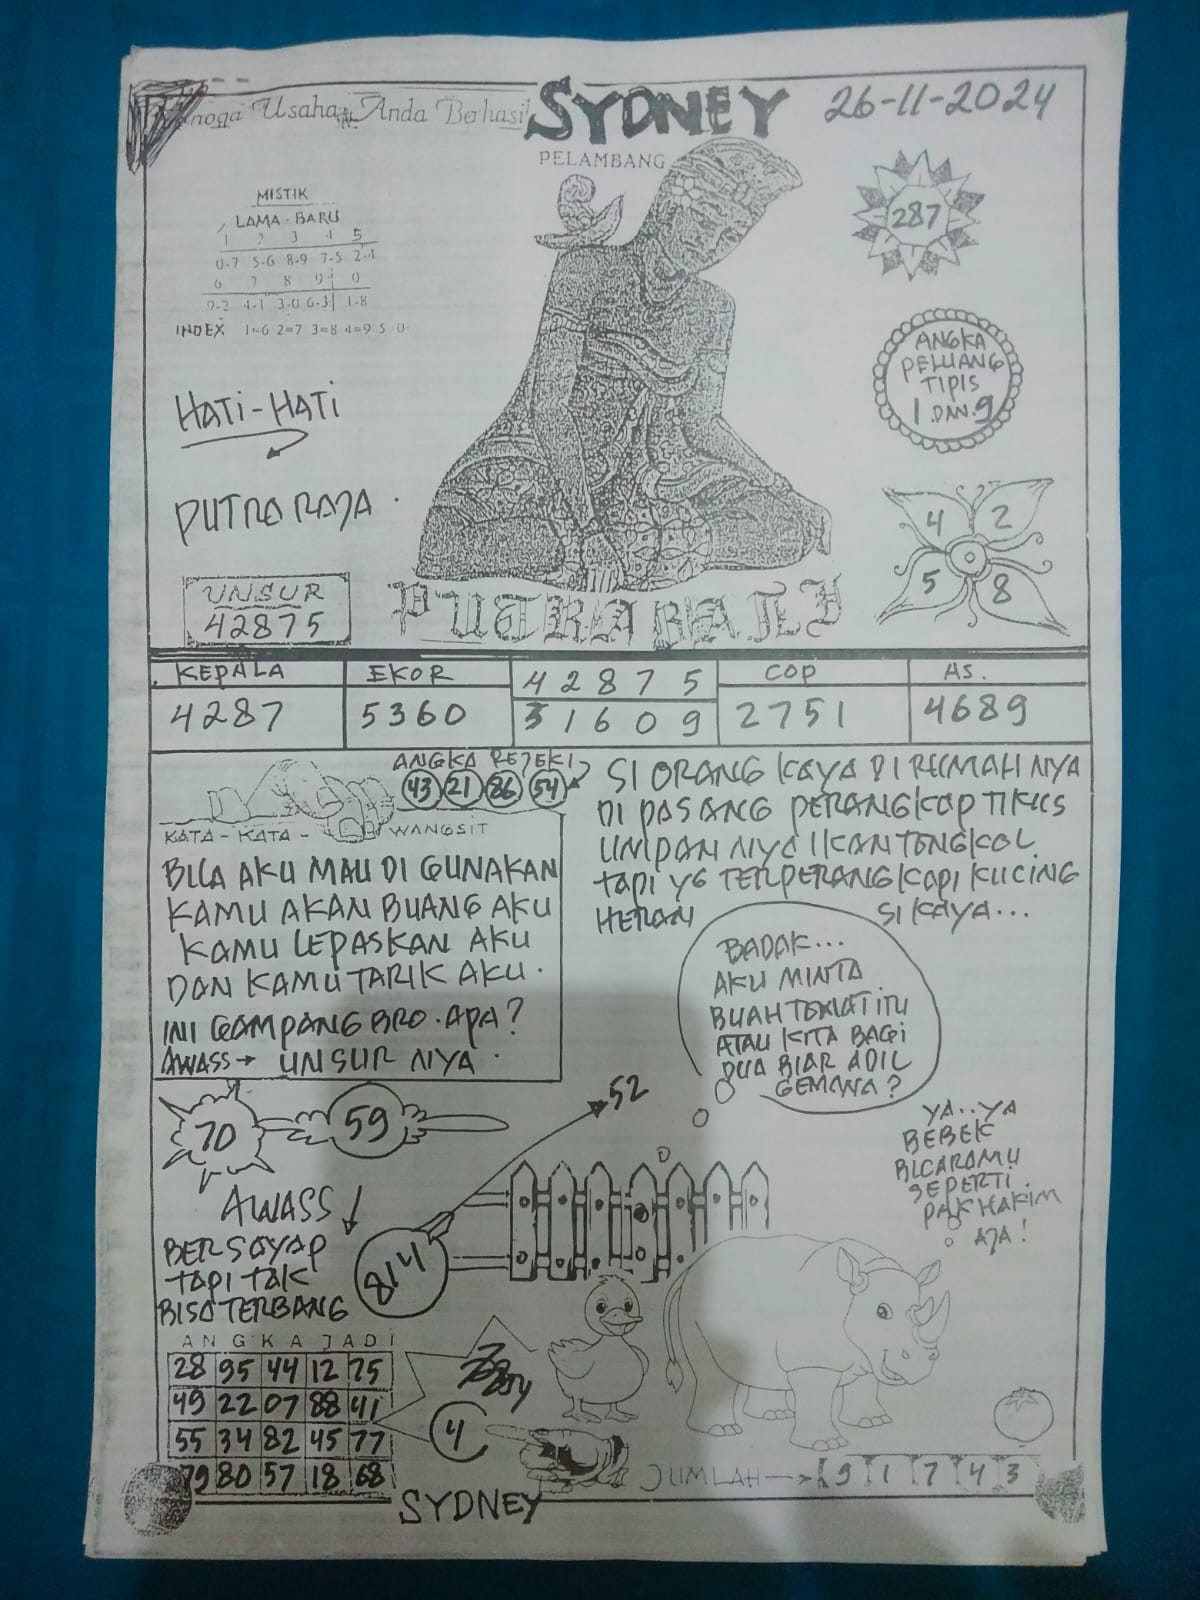 Usaha Anda Berhasil
SYDNEY
26-11-2024
PELAMBANG
MISTIK
LAMA - BARU
1 2 3 4 5
0-7 5-6 8-9 7-5 2-4
6 7 8 9 0
9-2 4-1 3-0 6-3 1-8
INDEX 1=6 2=7 3=8 4=9 5 0
287
ANGKA
PELUANG
TIPIS
1 DAN 9
HATI-HATI
PUTRA RAJA
4 2
5 8
UNSUR
42875
PUTRA BALI
KEPALA EKOR 4 2 8 7 5 COP AS.
4287 5360 3 1 6 0 9 2751 4689
ANGKA REJEKI
43 21 86 54
KATA - KATA - WANGSIT
BILA AKU MAU DI GUNAKAN
KAMU AKAN BUANG AKU
KAMU LEPASKAN AKU
DAN KAMU TARIK AKU.
INI GAMPANG BRO. APA?
AWASS → UNSUR NYA.
SI ORANG KAYA DI RUMAH NYA
DI PASANG PERANGKAP TIKUS
UMPAN NYA IKAN TONGKOL
TAPI YG TERPERANGKAP KUCING
HERAN SI KAYA...
BADAK...
AKU MINTA
BUAH TOMAT ITU
ATAU KITA BAGI
DUA BIAR ADIL
GEMANA?
YA..YA
BEBEK
BICARAMU
SEPERTI
PAK HAKIM
AJA!
70 59
52
AWASS
BERSAYAP
TAPI TAK
BISA TERBANG
814
ANGKA JADI
28 95 44 12 75
49 22 07 88 41
55 34 82 45 77
79 80 57 18 68
4
JUMLAH → 9 1 7 4 3
SYDNEY